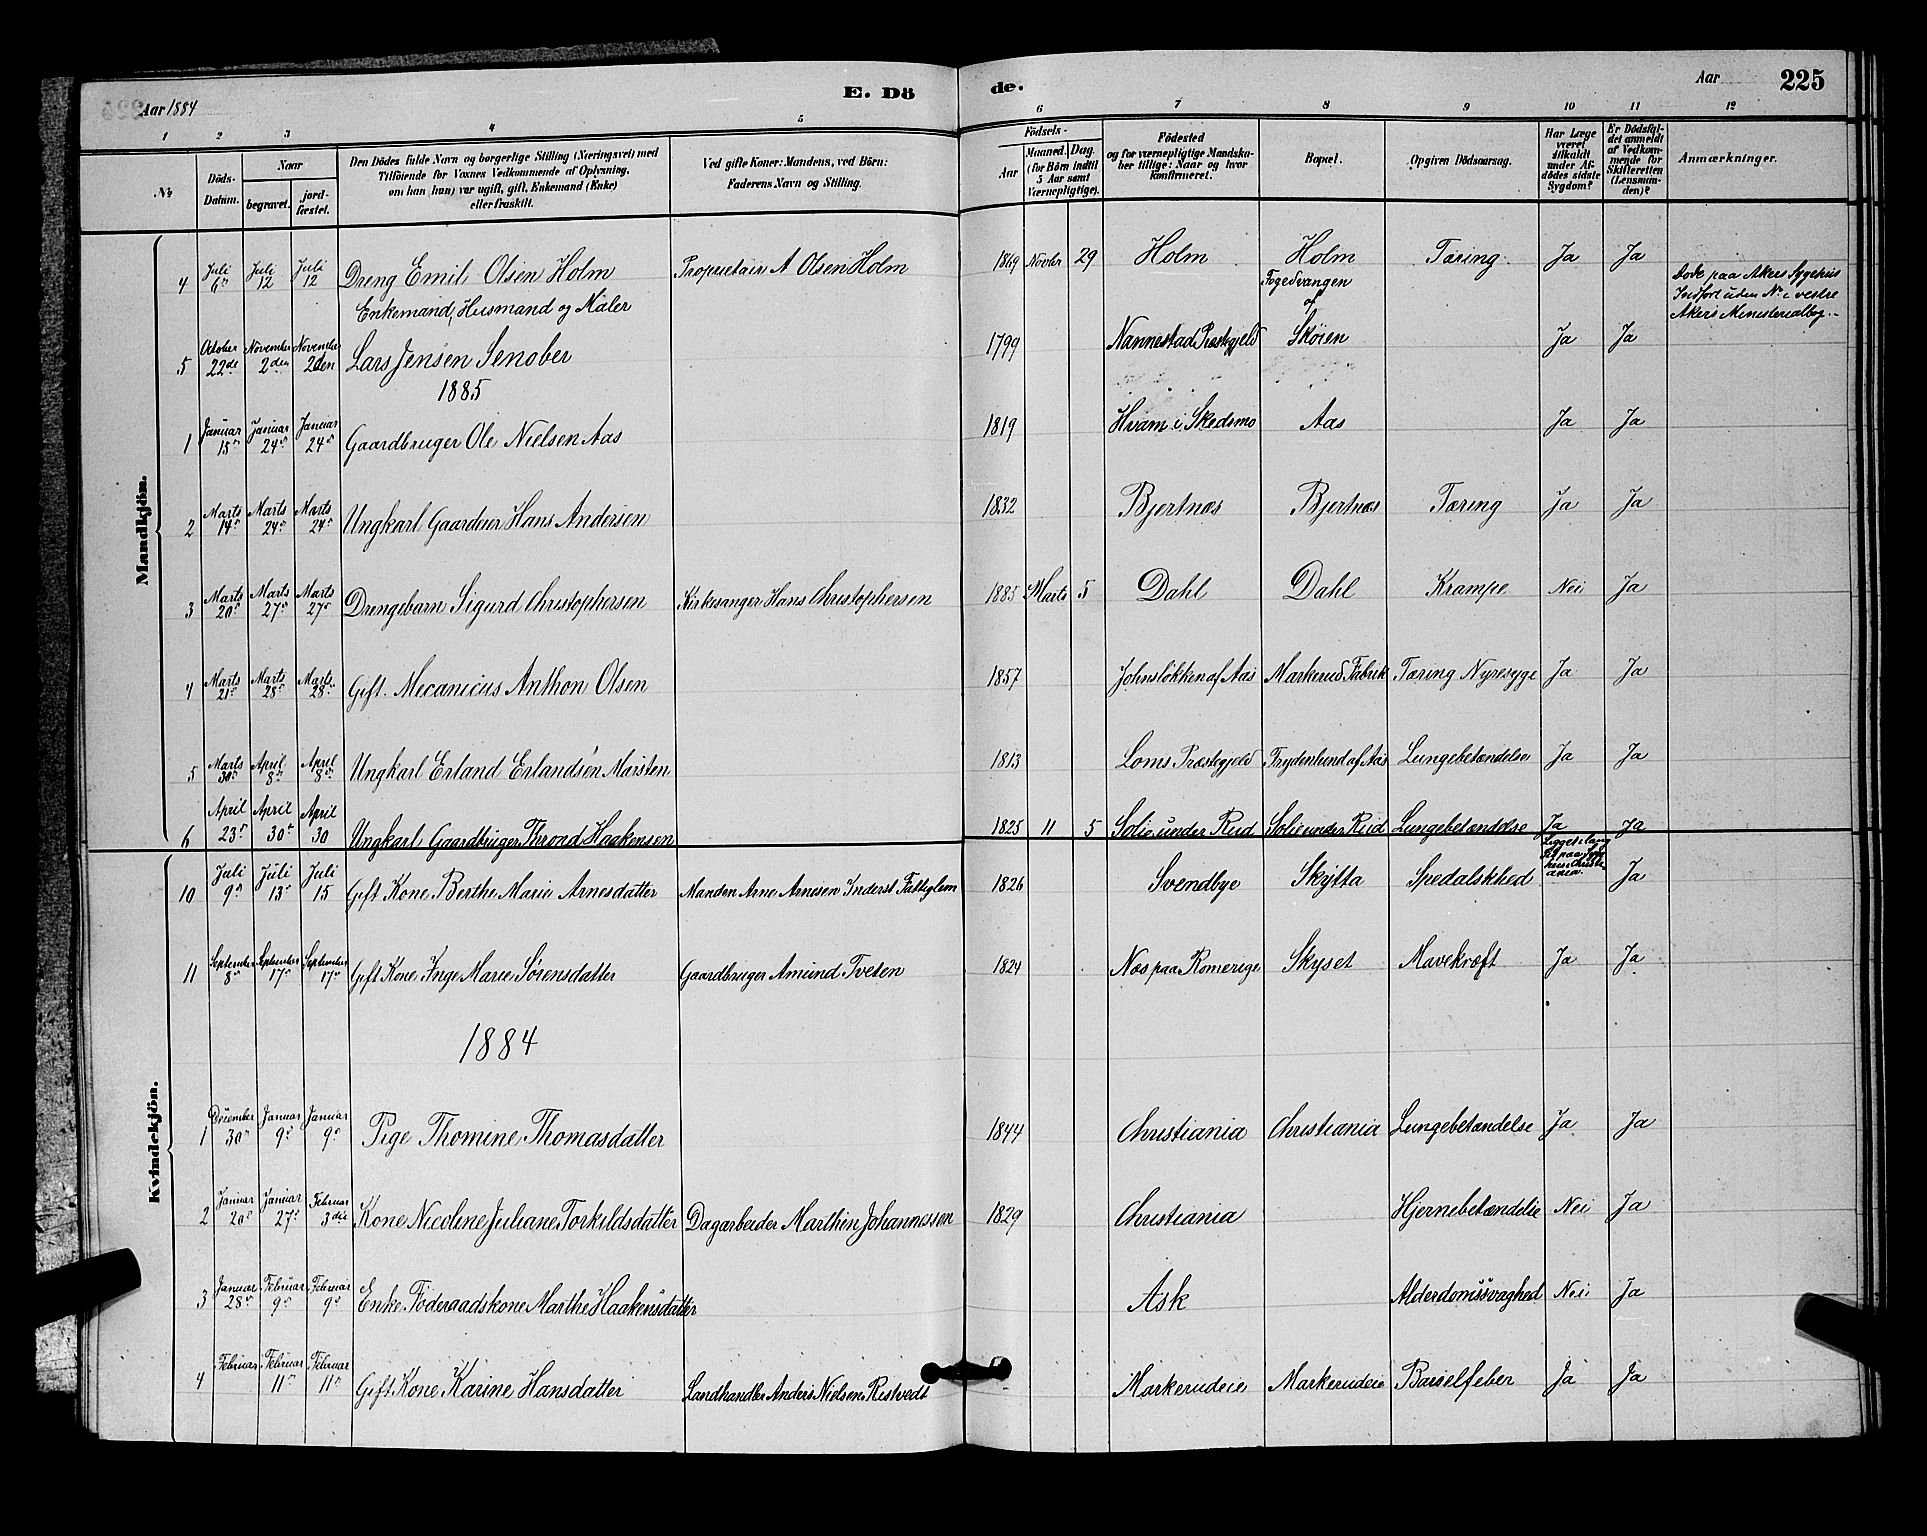 Aar 1884
E. Dö
de.
Aar
225
1 2 3 4 5 6 7 8 9 10 11 12
No
Döds-Datum.
Naar
begravet.
jord-fæstet.
Den Dödes fulde Navn og borgerlige Stilling (Næringsvei) med
Tilföiende for Voxnes Vedkommende af Oplysning,
om han (hun) var ugift, gift, Enkemand (Enke)
eller fraskilt.
Ved gifte Koner: Mandens, ved Börn:
Faderens Navn og Stilling.
Födsels-
Aar
Maaned. Dag.
(for Börn indtil
5 Aar samt
Værnepligtige).
Födested
og for værnepligtige Mandska-
ber tillige: Naar og hvor
konfirmeret.
Bopæl.
Opgiven Dödsaarsag.
Har Læge
været
tilkaldt
under Af-
dödes sidste
Sygdom?
Er Dödsfal-
det anmeldt
af Vedkom-
mende for
Skifteretten
(Lensman-
den)?
Anmærkninger.
Mandkjön.
4 Juli 6te Juli 12 Juli 12 Dreng Emil Olsen Holm Proprietair A Olsen Holm 1869 Novbr 29 Holm Holm Tæring Ja Ja
döde paa Akers Sygehus
Indfört uden No i vestre
Akers Ministerialbog..
Enkemand, Husmand og Maler
Fogedvangen
af
5 October 22de November 2den November 2den Lars Jensen Senober 1799 Nannestad Præstegjeld Skøien Ja Ja
1885
1 Januar 15de Januar 24de Januar 24de Gaardbruger Ole Nielsen Aas 1819 Hvam i Skedsmo Aas Ja Ja
2 Marts 14de Marts 24de Marts 24de Ungkarl Gaardeier Hans Andersen 1832 Bjertnæs Bjertnæs Tæring Ja Ja
3 Marts 20de Marts 27de Marts 27de Drengebarn Sigurd Christophersen Kirkesanger Hans Christophersen 1885 Marts 5 Dahl Dahl Krampe Nei Ja
4 Marts 21de Marts 28de Marts 28de Gift. Mecanicus Anthon Olsen 1857 Johnsløkken af Aas Markerud Fabrik Tæring Nyresyge Ja Ja
5 Marts 30de April 8de April 8de Ungkarl Erland Erlandsen Marsten 1813 Loms Præstegjeld Frydenlund af Aas Lungebetændelse Ja Ja
6 April 23de April 30te April 30 Ungkarl Gaardbruger Thrond Haakensen 1825 11 5 Solie under Rud Solie under Rud Lungebetændelse Ja Ja
Kvindekjön.
10 Juli 9de Juli 13de Juli 15 Gift Kone Berthe Marie Arnesdatter Manden Arne Arnesen Inderst Fattiglem 1826 Svendbye Skytta Spedalskhed Ligget i lang Tid paa Syge- huse Christiania. Ja
11 September 8de September 17de September 17de Gift Kone Inge Marie Sørensdatter Gaardbruger Amund Tveten 1824 Næs paa Romerige Skyset Mavekræft Ja Ja
1884
1 December 30de Januar 9de Januar 9de Pige Thomine Thomasdatter 1844 Christiania Christiania Lungebetændelse Ja Ja
2 Januar 20de Januar 27de Februar 3die Kone Nicoline Juliane Torkildsdatter Dagarbeider Marthin Johannessen 1829 Christiania Hjernebetændelse Nei Ja
3 Januar 28de Februar 9de Februar 9de Enke Føderaadskone Marthe Haakensdatter Ask Alderdomssvaghed Nei Ja
4 Februar Februar 11te Februar 11te Gift Kone Karine Hansdatter Landhandler Anders Nielsen Ristvedt Markerudeie Markerudeie Barselfeber Ja Ja